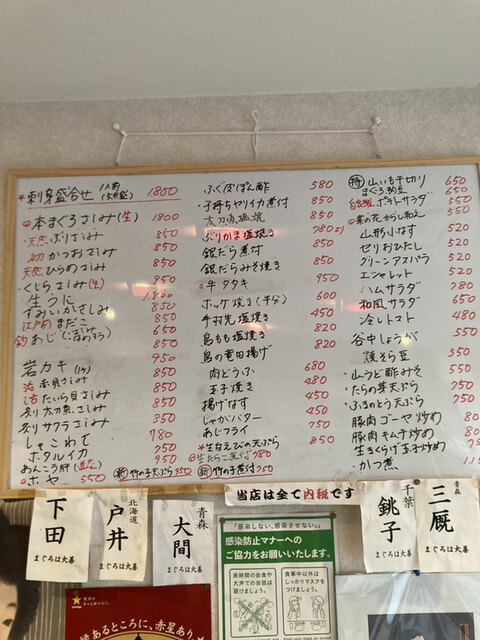 *刺身盛合せ 1人前 1800
本まぐろさしみ(生) 1800
天然ぶりさしみ 850
初かつおさしみ 850
天然ひらめさしみ 850
くじらさしみ(生)
生うに
すみいかさしみ 850
江戸前まだこ 850
釣あじ 650
岩カキ 950
活赤貝さしみ 850
活たいら貝さしみ 850
炙り太刀魚さしみ 850
炙りサワラさしみ 850
しゃこわさ 780
ホタルイカ 750
あんこう肝
ホヤ 550
新竹の子天ぷら 950
ふぐ肉ぽん酢 580
子持ちヤリイカ煮付 850
太刀魚塩焼 850
ぶりかま塩焼き 780より
銀だら煮付
銀だらみそ焼き 950
牛タタキ
ホッケ焼き(半分) 600
手羽先塩焼き 450
鳥もも塩焼き 820
鳥の竜田揚げ 820
肉どうふ 680
玉子焼き 480
揚げなす 450
じゃがバター 750
あじフライ
*生白えびの天ぷら 850
生たらこ煮付 780
新竹の子煮付 750
特山いも千切り 650
まぐろ納豆 650
自家製ポテトサラダ 550
菜の花からし和え 550
山形小なす 520
ゼリおひたし 520
グリーンアスパラ 520
エシャレット 520
ハムサラダ 780
和風サラダ 650
冷しトマト 480
谷中しょうが 550
焼そら豆 550
山うど酢みそ 550
たらの芽天ぷら 750
ふきのとう天ぷら 750
豚肉ゴーヤ炒め
豚肉キムチ炒め
生きくらげ玉子炒め
かつ煮
当店は全て内税です
下田
まぐろは大善
北海道
戸井
まぐろは大善
青森
大間
まぐろは大善
千葉
銚子
まぐろは大善
青森
三厩
まぐろは大善
「感染しない、感染させない」
感染防止マナーへの
ご協力をお願いいたします。
長時間の会食や
大声での会話は
避けましょう。
食事中以外は
しっかりマスクを
つけましょう。
縁あるところに、赤星あり